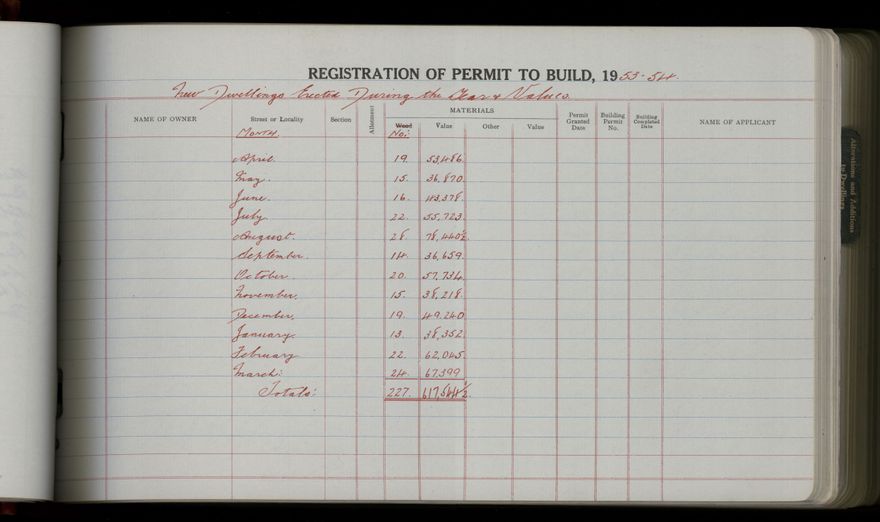 REGISTRATION OF PERMIT TO BUILD, 1953-54.
New Dwellings Erected During the Year & Values.
NAME OF OWNER Street or Locality Section Allotment MATERIALS Permit Granted Date Building Permit No. Building Completed Date NAME OF APPLICANT
Wood Value Other Value
Month. No:
April. 19. 53,486.
May. 15. 36,870.
June. 16. 43,378.
July. 22. 55,723.
August. 28. 78,440½.
September. 14. 36,659.
October. 20. 57,734.
November. 15. 38,218.
December. 19. 49,240
January. 13. 38,352.
February 22. 62,045.
March: 24. 67,399
Totals: 227. 617,544½.
Alterations and Additions
to Dwellings